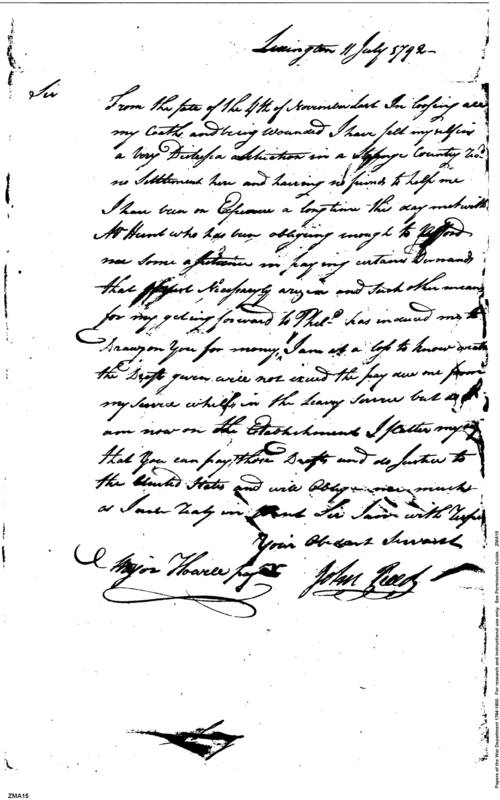 Lexington 11 July 1792 -
Sir
From the fate of the 4th of November last In loosing all
my Cloths and being wounded I have felt myself in
a very Distress a situation in a Strange Country
no Settlement here and having no funds to help me
I have been on Expence a long time this day met with
Mr Hunt who has been obliging enough to afford
me some assistance in paying certain Demands
that Necessaryly arizen and such other means
for my geting forward to Phila. has induced me to
Draw on You for money, I am at a loss to know
the Drafts given will not exceed the pay due me from
my service whilst in the Leavy Service but as I
am now on the Establishment I flatter myself
that You can pay those Drafts and do Justice to
the United States and will Oblige me much
as I am Sir I am with
Your Obedient Servant
Major Howell John Reed
ZMA15
Papers of the War Department 1784-1800. For research and instructional use only. See Permissions Guide. ZMA15